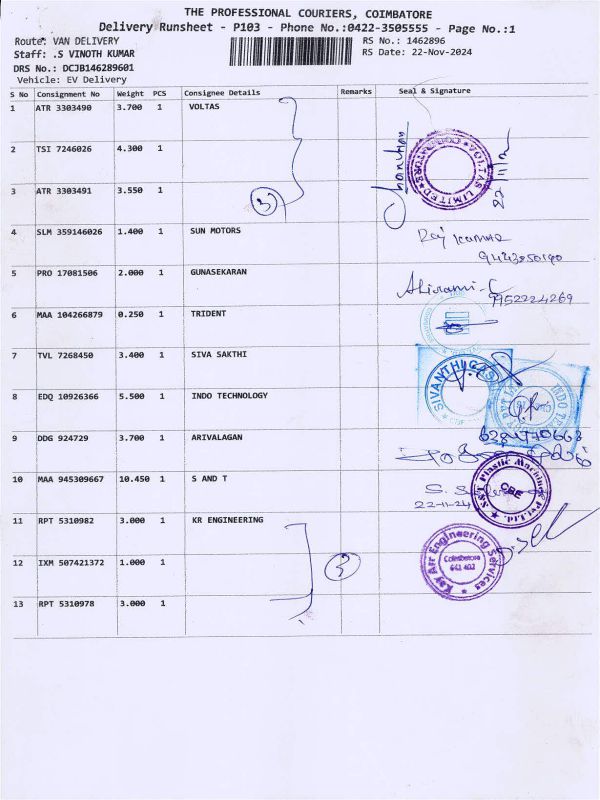 THE PROFESSIONAL COURIERS, COIMBATORE
Delivery Runsheet - P103 - Phone No.:0422-3505555 - Page No.:1
Route: VAN DELIVERY
RS No.: 1462896
Staff: .S VINOTH KUMAR
RS Date: 22-Nov-2024
DRS No.: DCJB146289601
Vehicle: EV Delivery
S No Consignment No Weight PCS Consignee Details Remarks Seal & Signature
1 ATR 3303490 3.700 1 VOLTAS
2 TSI 7246026 4.300 1
VOLTAS LIMITED
3 ATR 3303491 3.550 1
3
4 SLM 359146026 1.400 1 SUN MOTORS
Raj Kumar
5 PRO 17081506 2.000 1 GUNASEKARAN
Abirami. C
9952224269
6 MAA 104266879 0.250 1 TRIDENT
7 TVL 7268450 3.400 1 SIVA SAKTHI
SIVANTHI GAS
8 EDQ 10926366 5.500 1 INDO TECHNOLOGY
9 DDG 924729 3.700 1 ARIVALAGAN
10 MAA 945309667 10.450 1 S AND T
S&T Plastic Machines Pvt.Ltd.
CBE
22-11-24
11 RPT 5310982 3.000 1 KR ENGINEERING
12 IXM 507421372 1.000 1
Kay Arr Engineering Services
Coimbatore
13 RPT 5310978 3.000 1